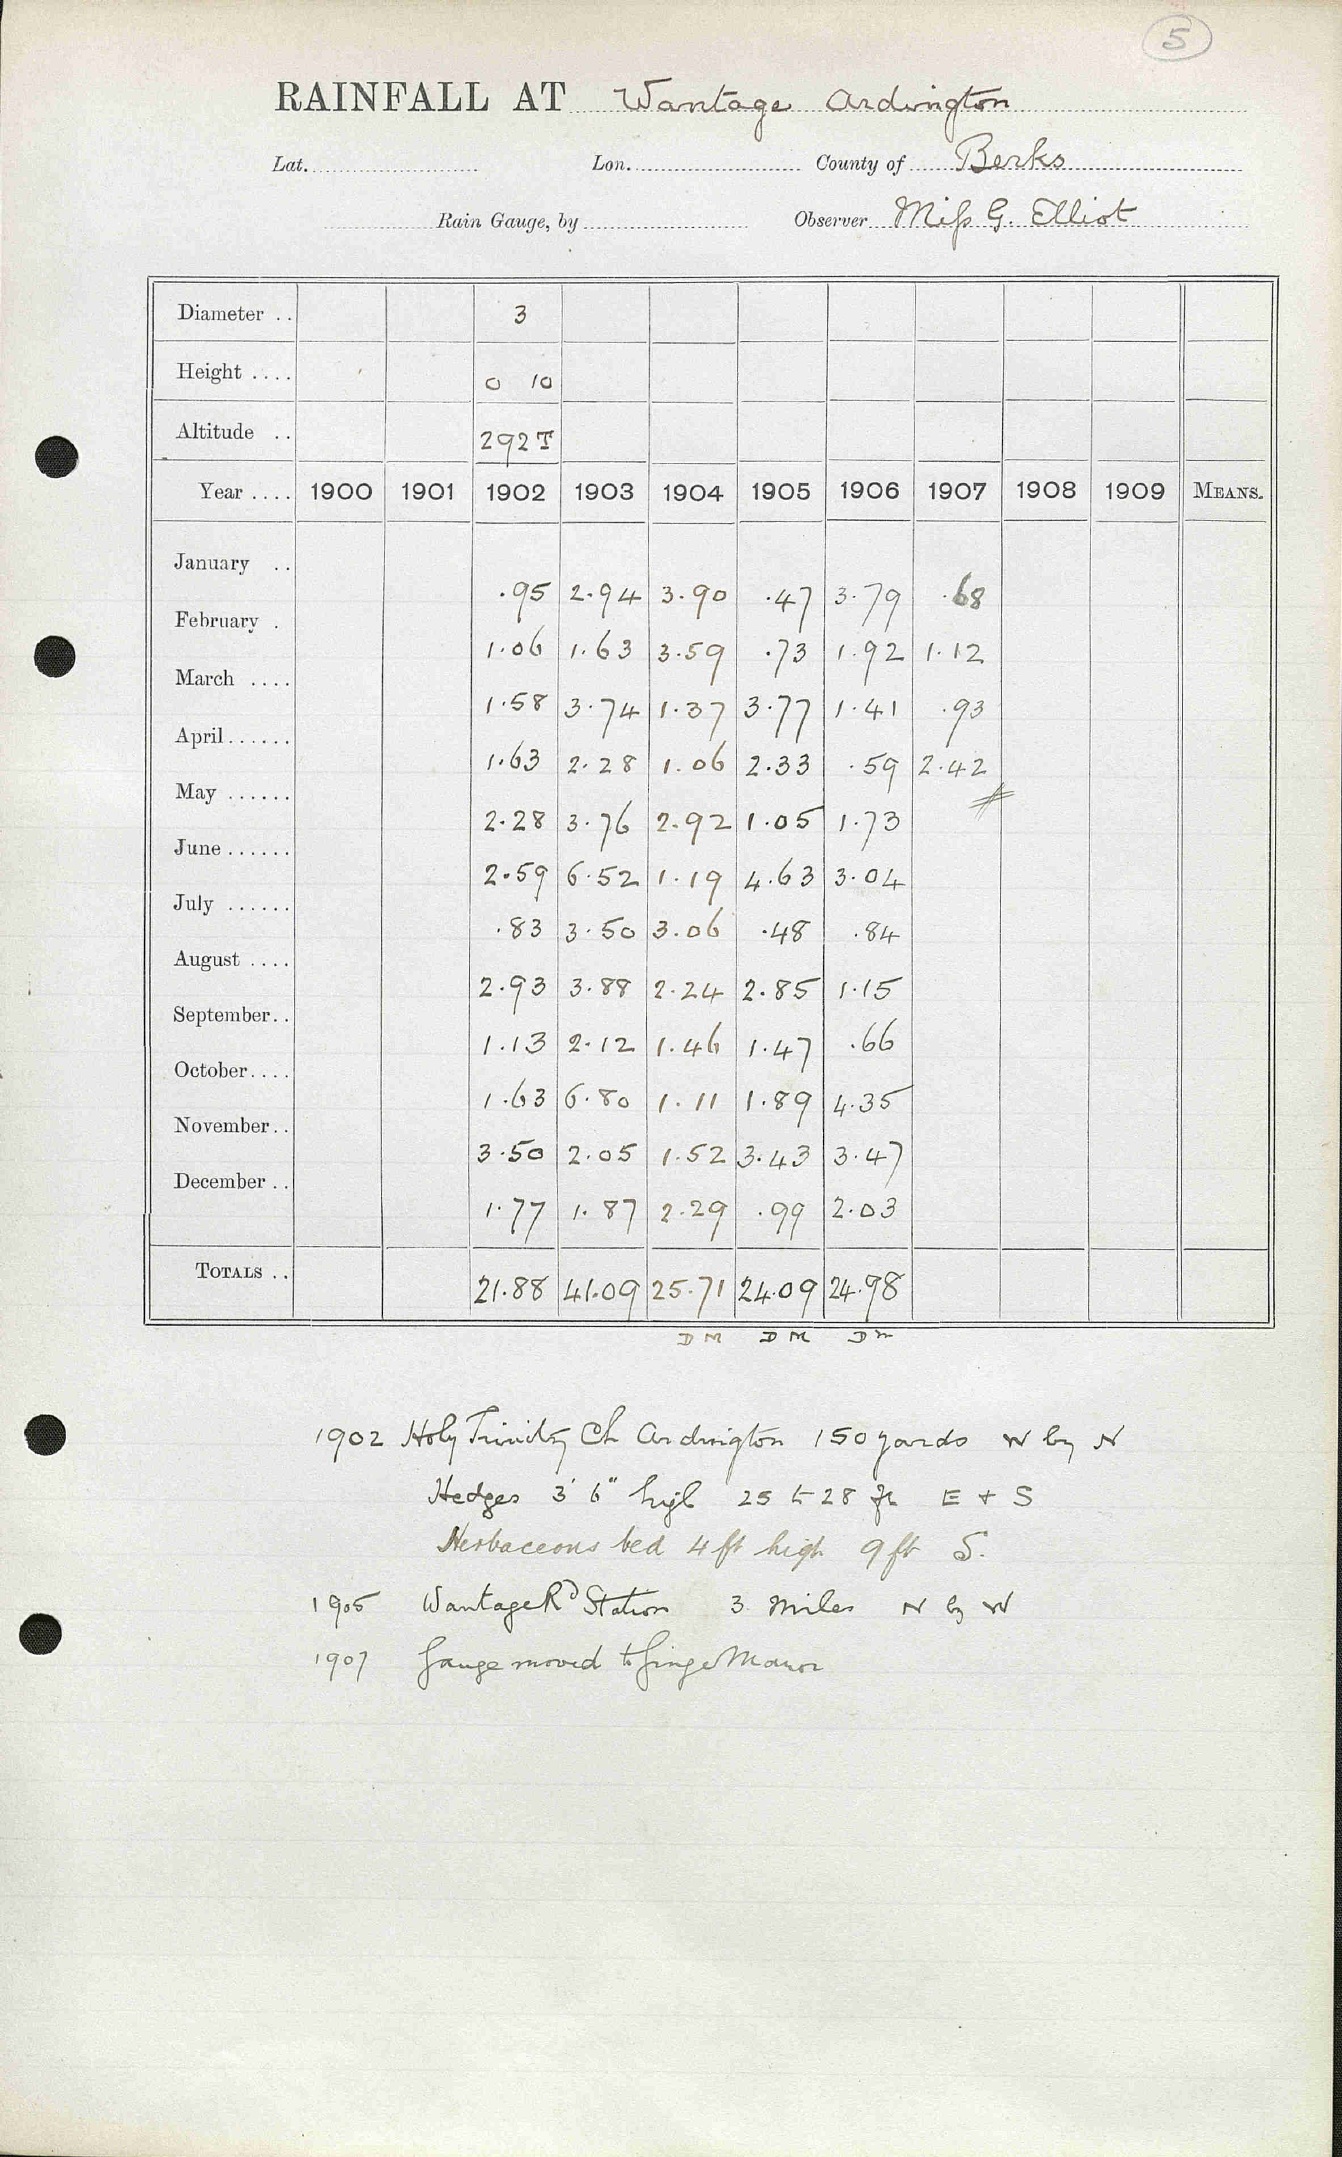 5
RAINFALL AT Wantage Ardington
Lat. Lon. County of Berks
Rain Gauge, by Observer Miſs G. Elliot
Diameter .. 3
Height .... 0 10
Altitude .. 292 T
Year .... 1900 1901 1902 1903 1904 1905 1906 1907 1908 1909 MEANS.
January .. .95 2.94 3.90 .47 3.79 .68
February . 1.06 1.63 3.59 .73 1.92 1.12
March .... 1.58 3.74 1.37 3.77 1.41 .93
April ...... 1.63 2.28 1.06 2.33 .59 2.42
May ...... 2.28 3.76 2.92 1.05 1.73
June ...... 2.59 6.52 1.19 4.63 3.04
July ...... .83 3.50 3.06 .48 .84
August .... 2.93 3.88 2.24 2.85 1.15
September.. 1.13 2.12 1.46 1.47 .66
October.... 1.63 6.80 1.11 1.89 4.35
November.. 3.50 2.05 1.52 3.43 3.47
December .. 1.77 1.87 2.29 .99 2.03
TOTALS .. 21.88 41.09 25.71 24.09 24.98
DM DM DM
1902 Holy Trinity Ch Ardington 150 yards W by N
Hedges 3' 6" high 25 to 28 ft E + S
Herbaceous bed 4 ft high 9 ft S.
1905 Wantage Rd Station 3 miles N by W
1907 Gauge moved to Ginge Manor